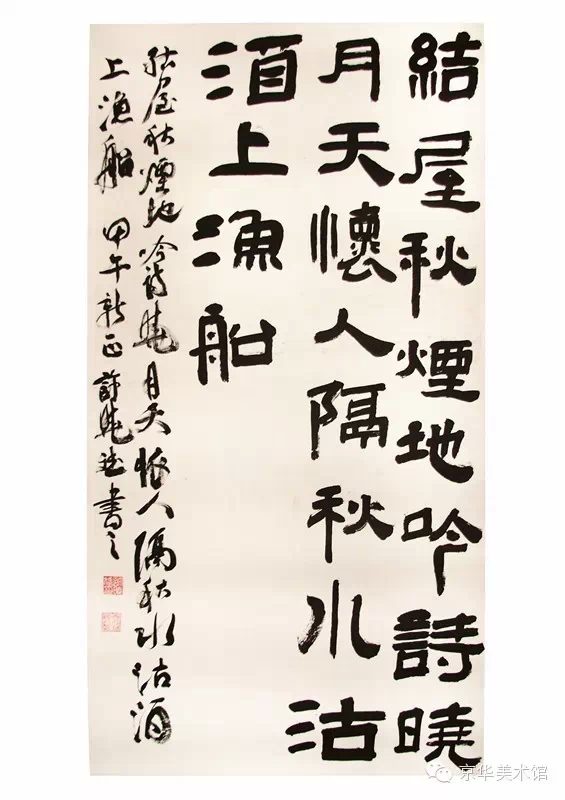 結屋秋煙地吟詩曉
月天懷人隔秋水沽
酒上漁船
結屋秋煙地吟詩曉月天懷人隔秋水沽酒
上漁船 甲午新正 許曉 書之
京华美术馆